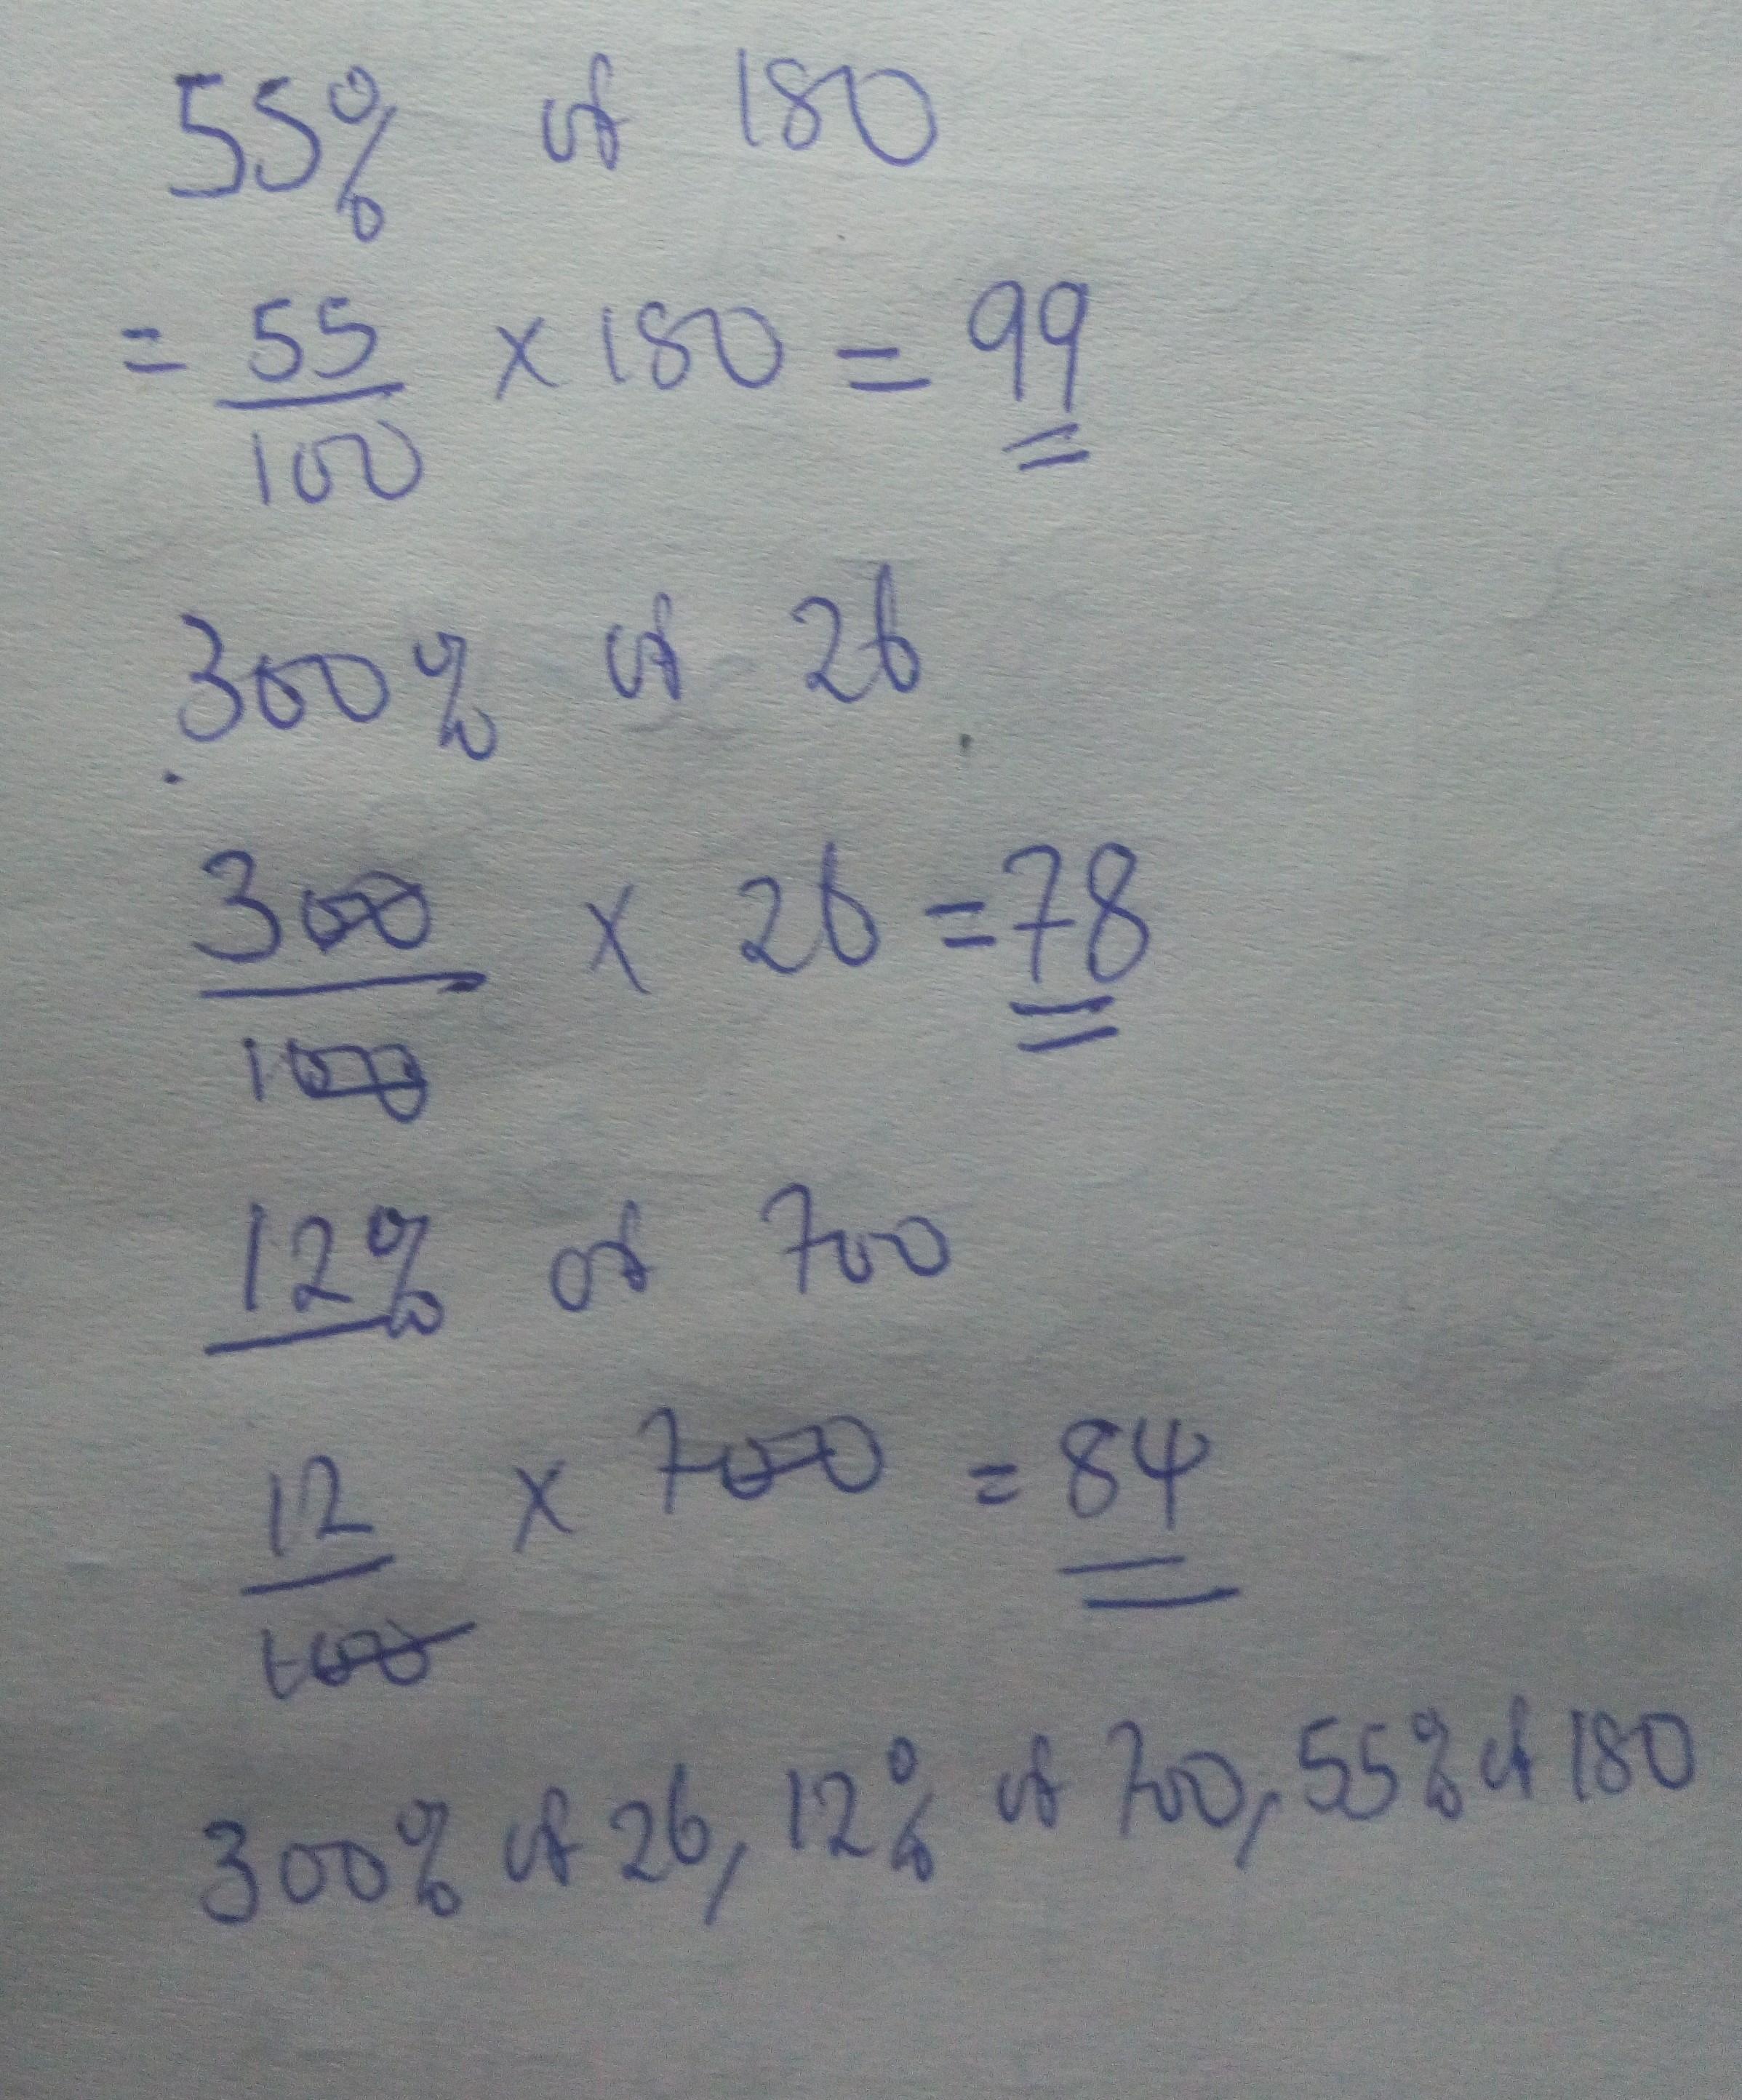 55% of 180
= 55/100 × 180 = 99
300% of 26
300/100 × 26 = 78
12% of 700
12/100 × 700 = 84
300% of 26, 12% of 700, 55% of 180